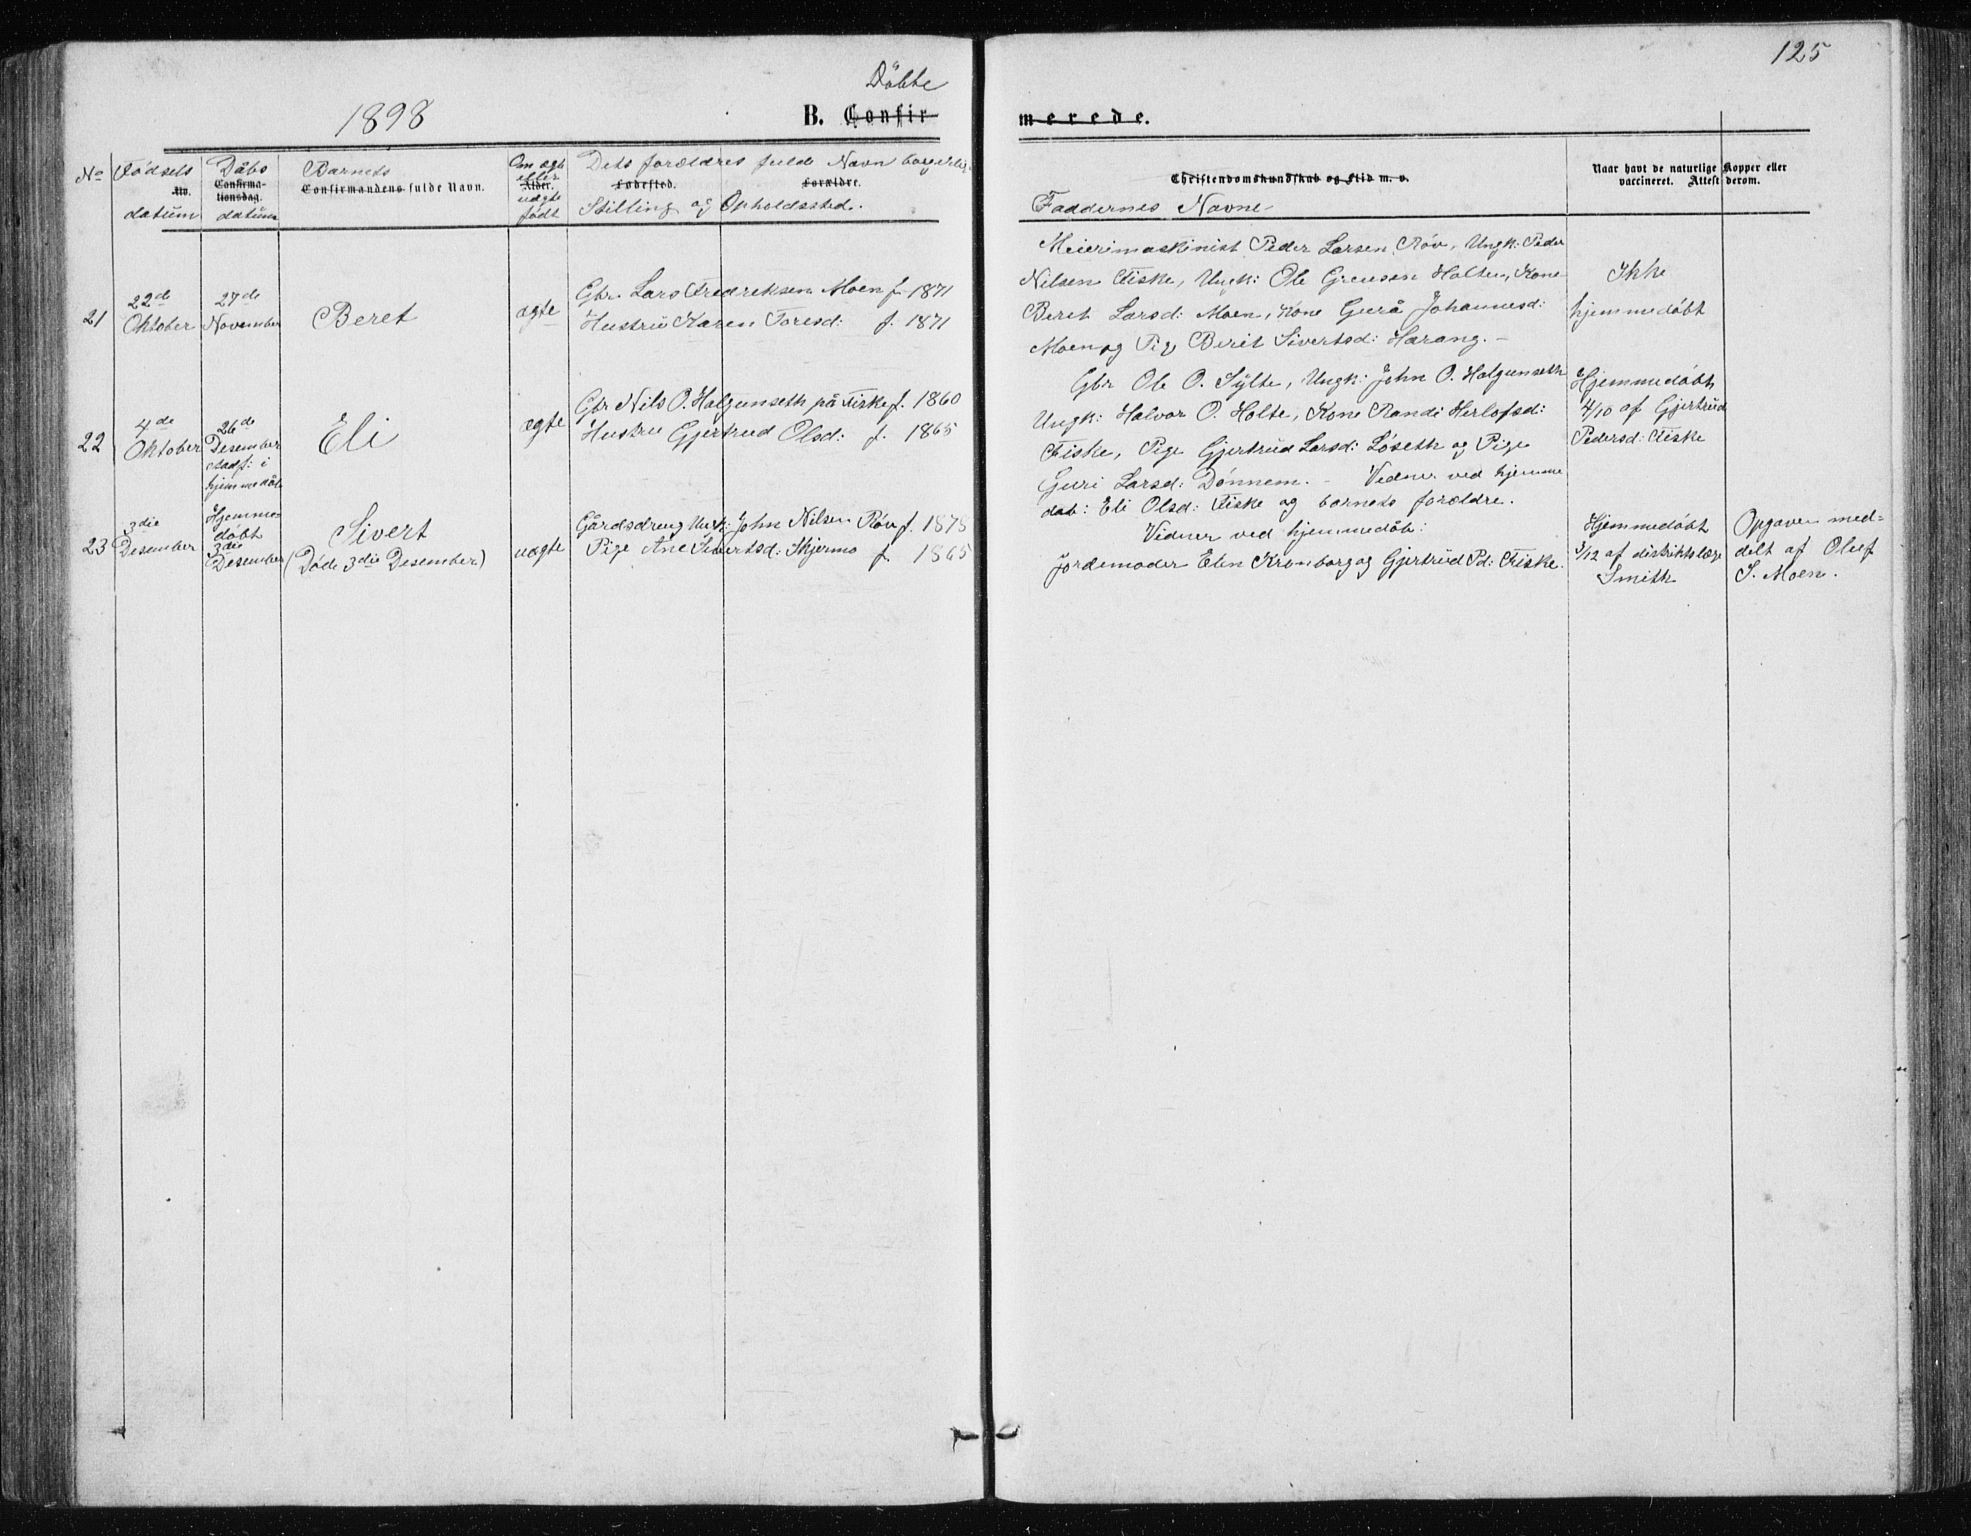 125
1898
Döbte
B. Confirmerede.
No
Födsels
No.
datum
Dåbs
Confirmationsdag.
datum
Barnets
Confirmandens fulde Navn.
Om ægte
eller
Alder.
uægte
født
Dets forældres fulde Navn borgerlig
Fødested. Forældre.
Stilling og Opholdssted.
Christendomskundskab og Flid m. v.
Faddernes Navne
Naar havt de naturlige Kopper eller
vaccineret. Attest derom.
21
22de
Oktober
27de
November
Beret
ægte
Gbr. Lars Fredreksen Moen f. 1871
Hustru Karen Toresd: f. 1871
Meierimaskinist Peder Larsen Røv, Ungk: Peder
Nilsen Fiske, Ungk: Ole Holten, Kone
Beret Larsd: Moen, Kone Gurå Johannesd:
Moen og Pige Berit Sivertsd: Harang. -
Ikke
hjemmedøbt
22
4de
Oktober
26de
Desember
stadf: i
hjemmedåb
Eli
ægte
Gbr Nils O. Halgunseth på Fiske f. 1860
Hustru Gjertrud Olsd: f. 1865
Gbr Ole O. Sylte, Ungk: John O. Halgunseth
Ungk: Halvor O. Holte, Kone Randi Herlofsd:
Fiske, Pige Gjertrud Larsd: Løseth og Pige
Guri Larsd: Dønnem. - Vidner ved hjemme
dåb: Eli Olsd: Fiske og barnets forældre.
Hjemmedøbt
4/10 af Gjertrud
Pedersd: Fiske
23
3die
Desember
Hjemme-
døbt
3die
Desember
Sivert
(Døde 3die Desember)
uægte
Gårdsdreng Ungk: John Nilsen Røv f. 1875
Pige Ane Sivertsd: Skjermo f. 1865
Vidner ved hjemmedåb:
Jordemoder Elen Kronborg og Gjertrud Pd: Fiske.
Hjemmedøbt
3/12 af distriktslæge
Smith
Opgaven med-
delt af Oluf
S. Moen.